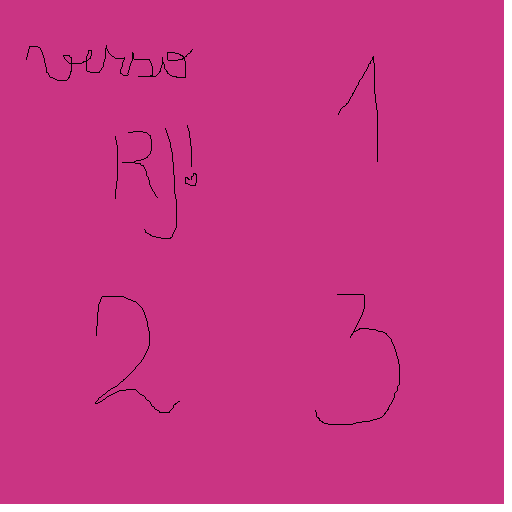 verso
1
RJ!
2
3